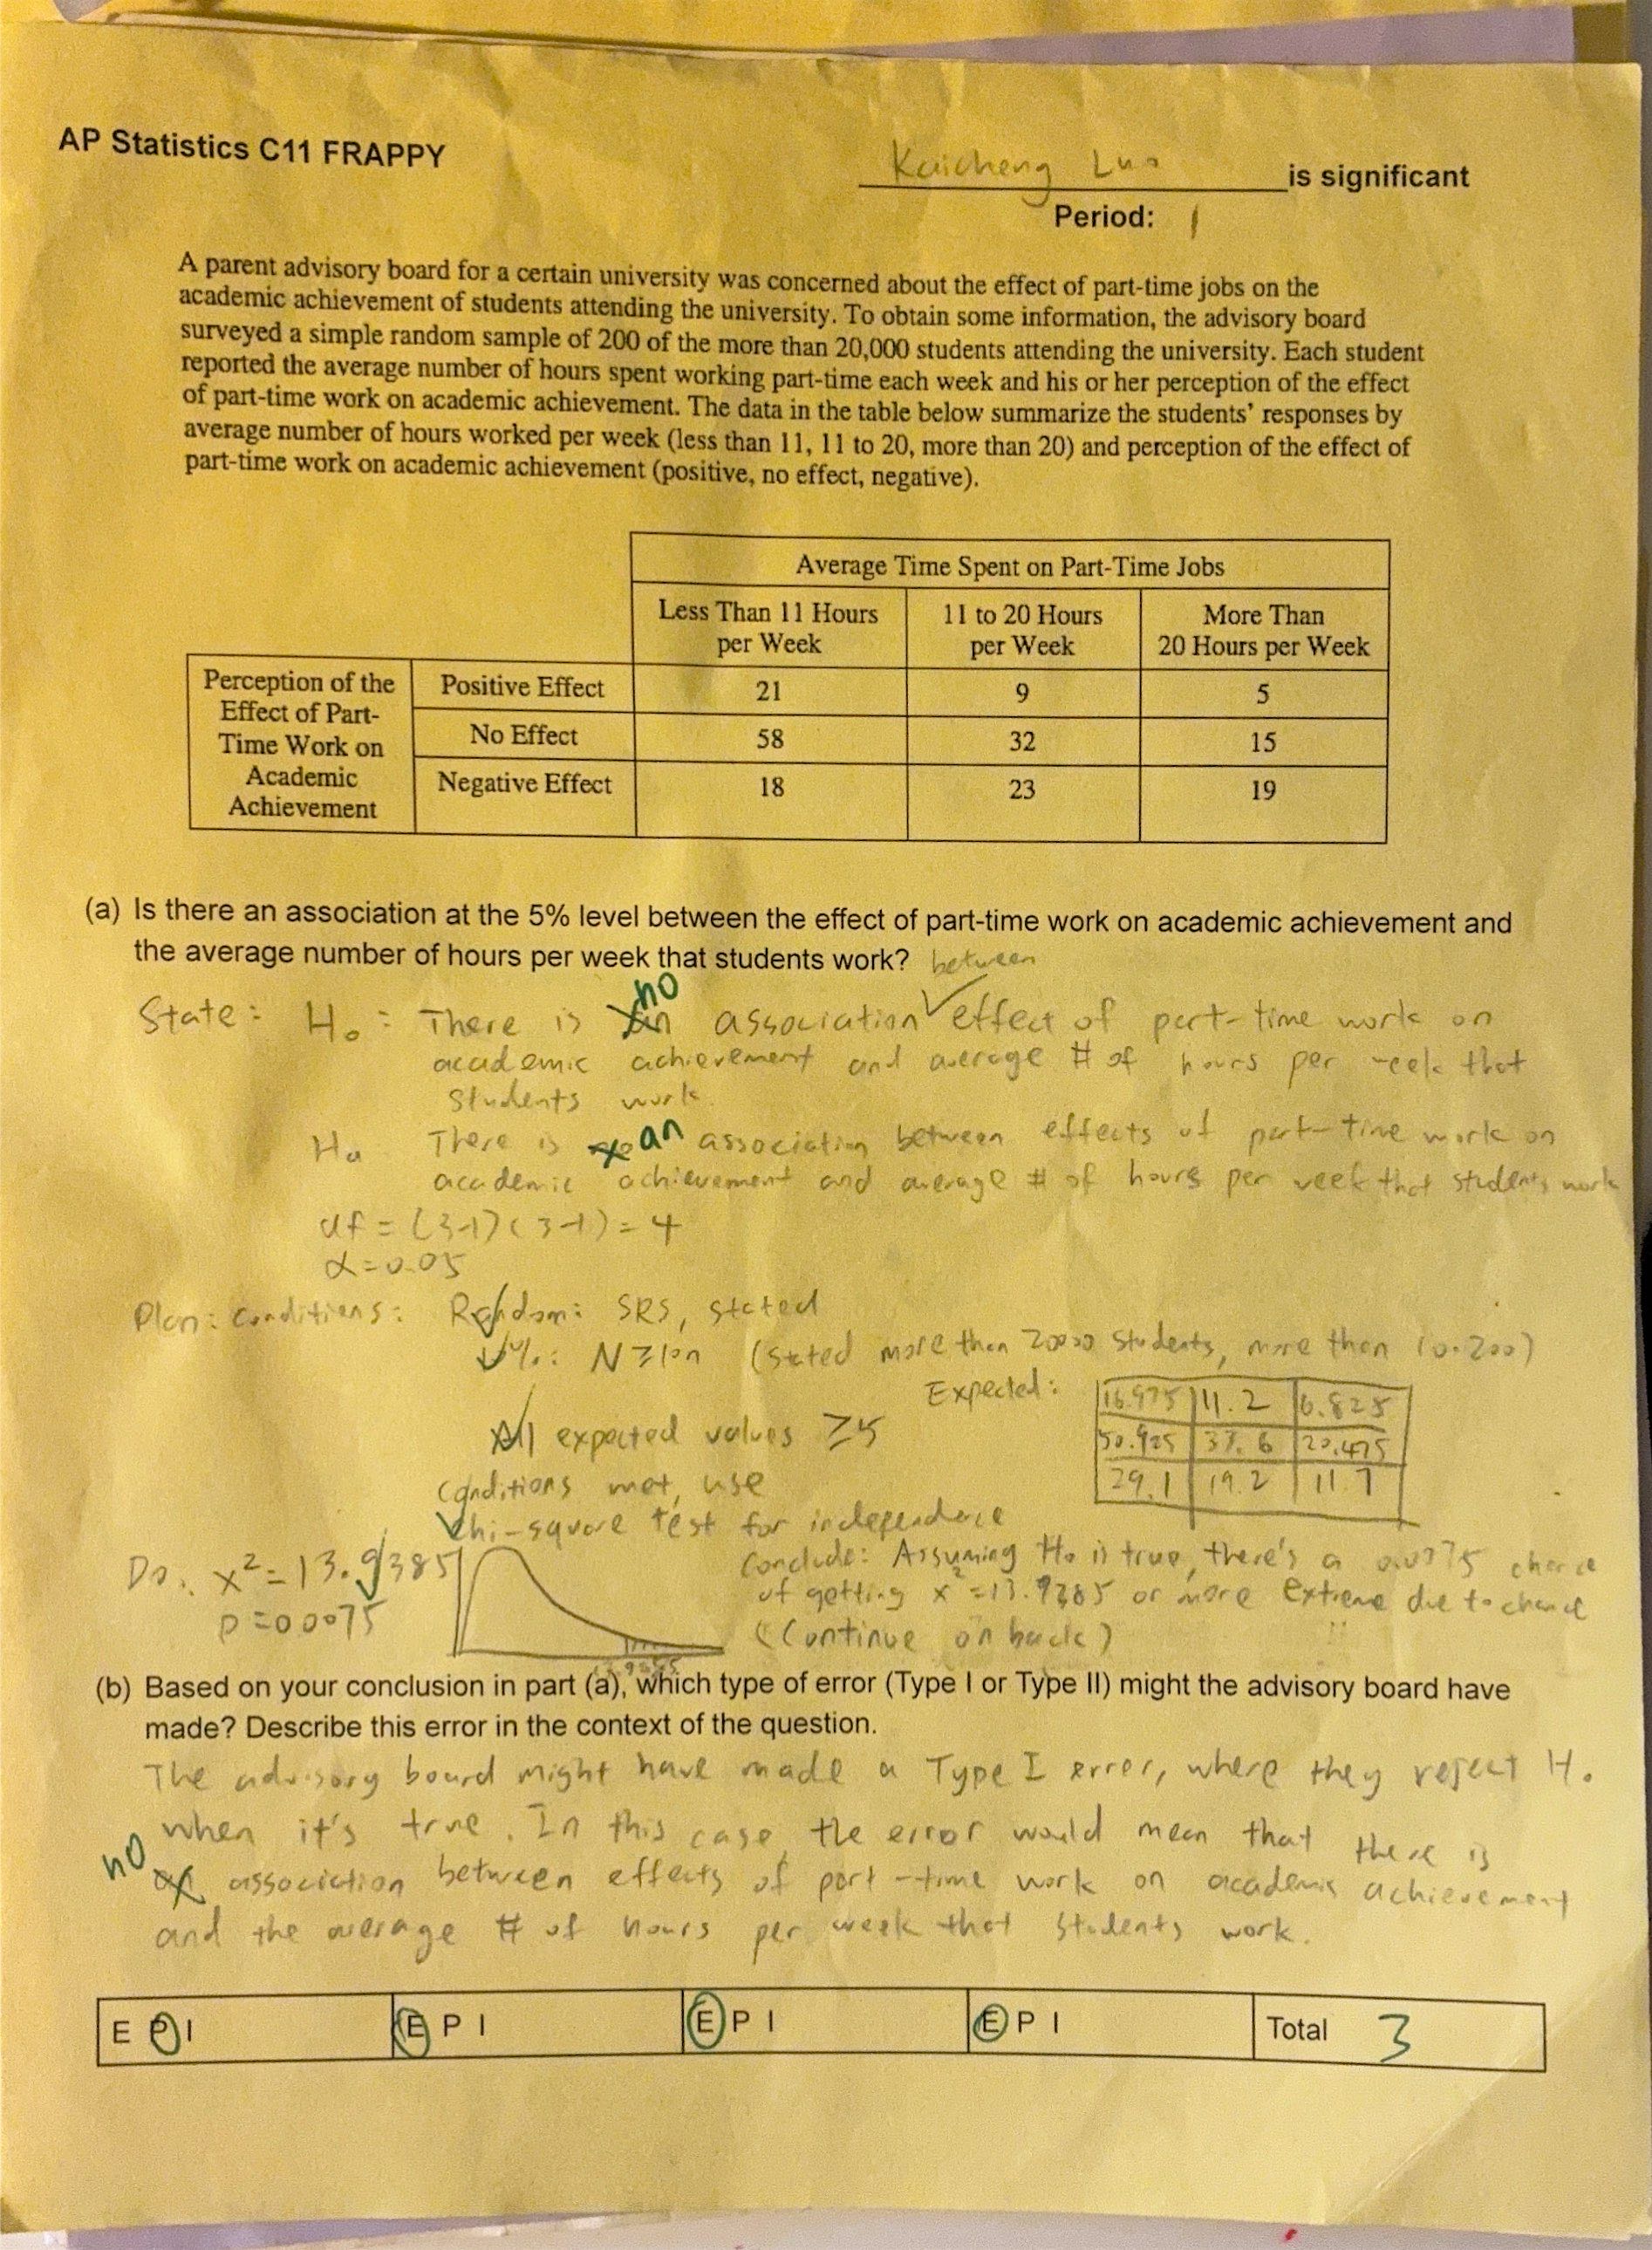 AP Statistics C11 FRAPPY
Kaicheng Luo is significant
Period: 1
A parent advisory board for a certain university was concerned about the effect of part-time jobs on the
academic achievement of students attending the university. To obtain some information, the advisory board
surveyed a simple random sample of 200 of the more than 20,000 students attending the university. Each student
reported the average number of hours spent working part-time each week and his or her perception of the effect
of part-time work on academic achievement. The data in the table below summarize the students' responses by
average number of hours worked per week (less than 11, 11 to 20, more than 20) and perception of the effect of
part-time work on academic achievement (positive, no effect, negative).
Average Time Spent on Part-Time Jobs
Less Than 11 Hours per Week 11 to 20 Hours per Week More Than 20 Hours per Week
Perception of the Effect of Part-Time Work on Academic Achievement
Positive Effect 21 9 5
No Effect 58 32 15
Negative Effect 18 23 19
(a) Is there an association at the 5% level between the effect of part-time work on academic achievement and
the average number of hours per week that students work? between
no
State: H₀: There is an association effect of part-time work on
academic achievement and average # of hours per week that
students work.
Ha There is no an association between effects of part-time work on
academic achievement and average # of hours per week that students work
df = (3-1)(3-1) = 4
α=0.05
Plan: Conditions: Random: SRS, stated
10%: N≥10n (stated more than 20000 students, more than 10·200)
Expected:
16.975 11.2 6.825
50.925 33.6 20.475
29.1 19.2 11.7
All expected values ≥5
Conditions met, use
chi-square test for independence
Do: x²=13.9385
p=0.0075
13.9385
Conclude: Assuming H₀ is true, there's a 0.0075 chance
of getting x²=13.9385 or more extreme due to chance
(Continue on back)
(b) Based on your conclusion in part (a), which type of error (Type I or Type II) might the advisory board have
made? Describe this error in the context of the question.
The advisory board might have made a Type I error, where they reject H₀
when it's true. In this case, the error would mean that there is
no an association between effects of part-time work on academic achievement
and the average # of hours per week that students work.
E P I E P I E P I E P I Total 3